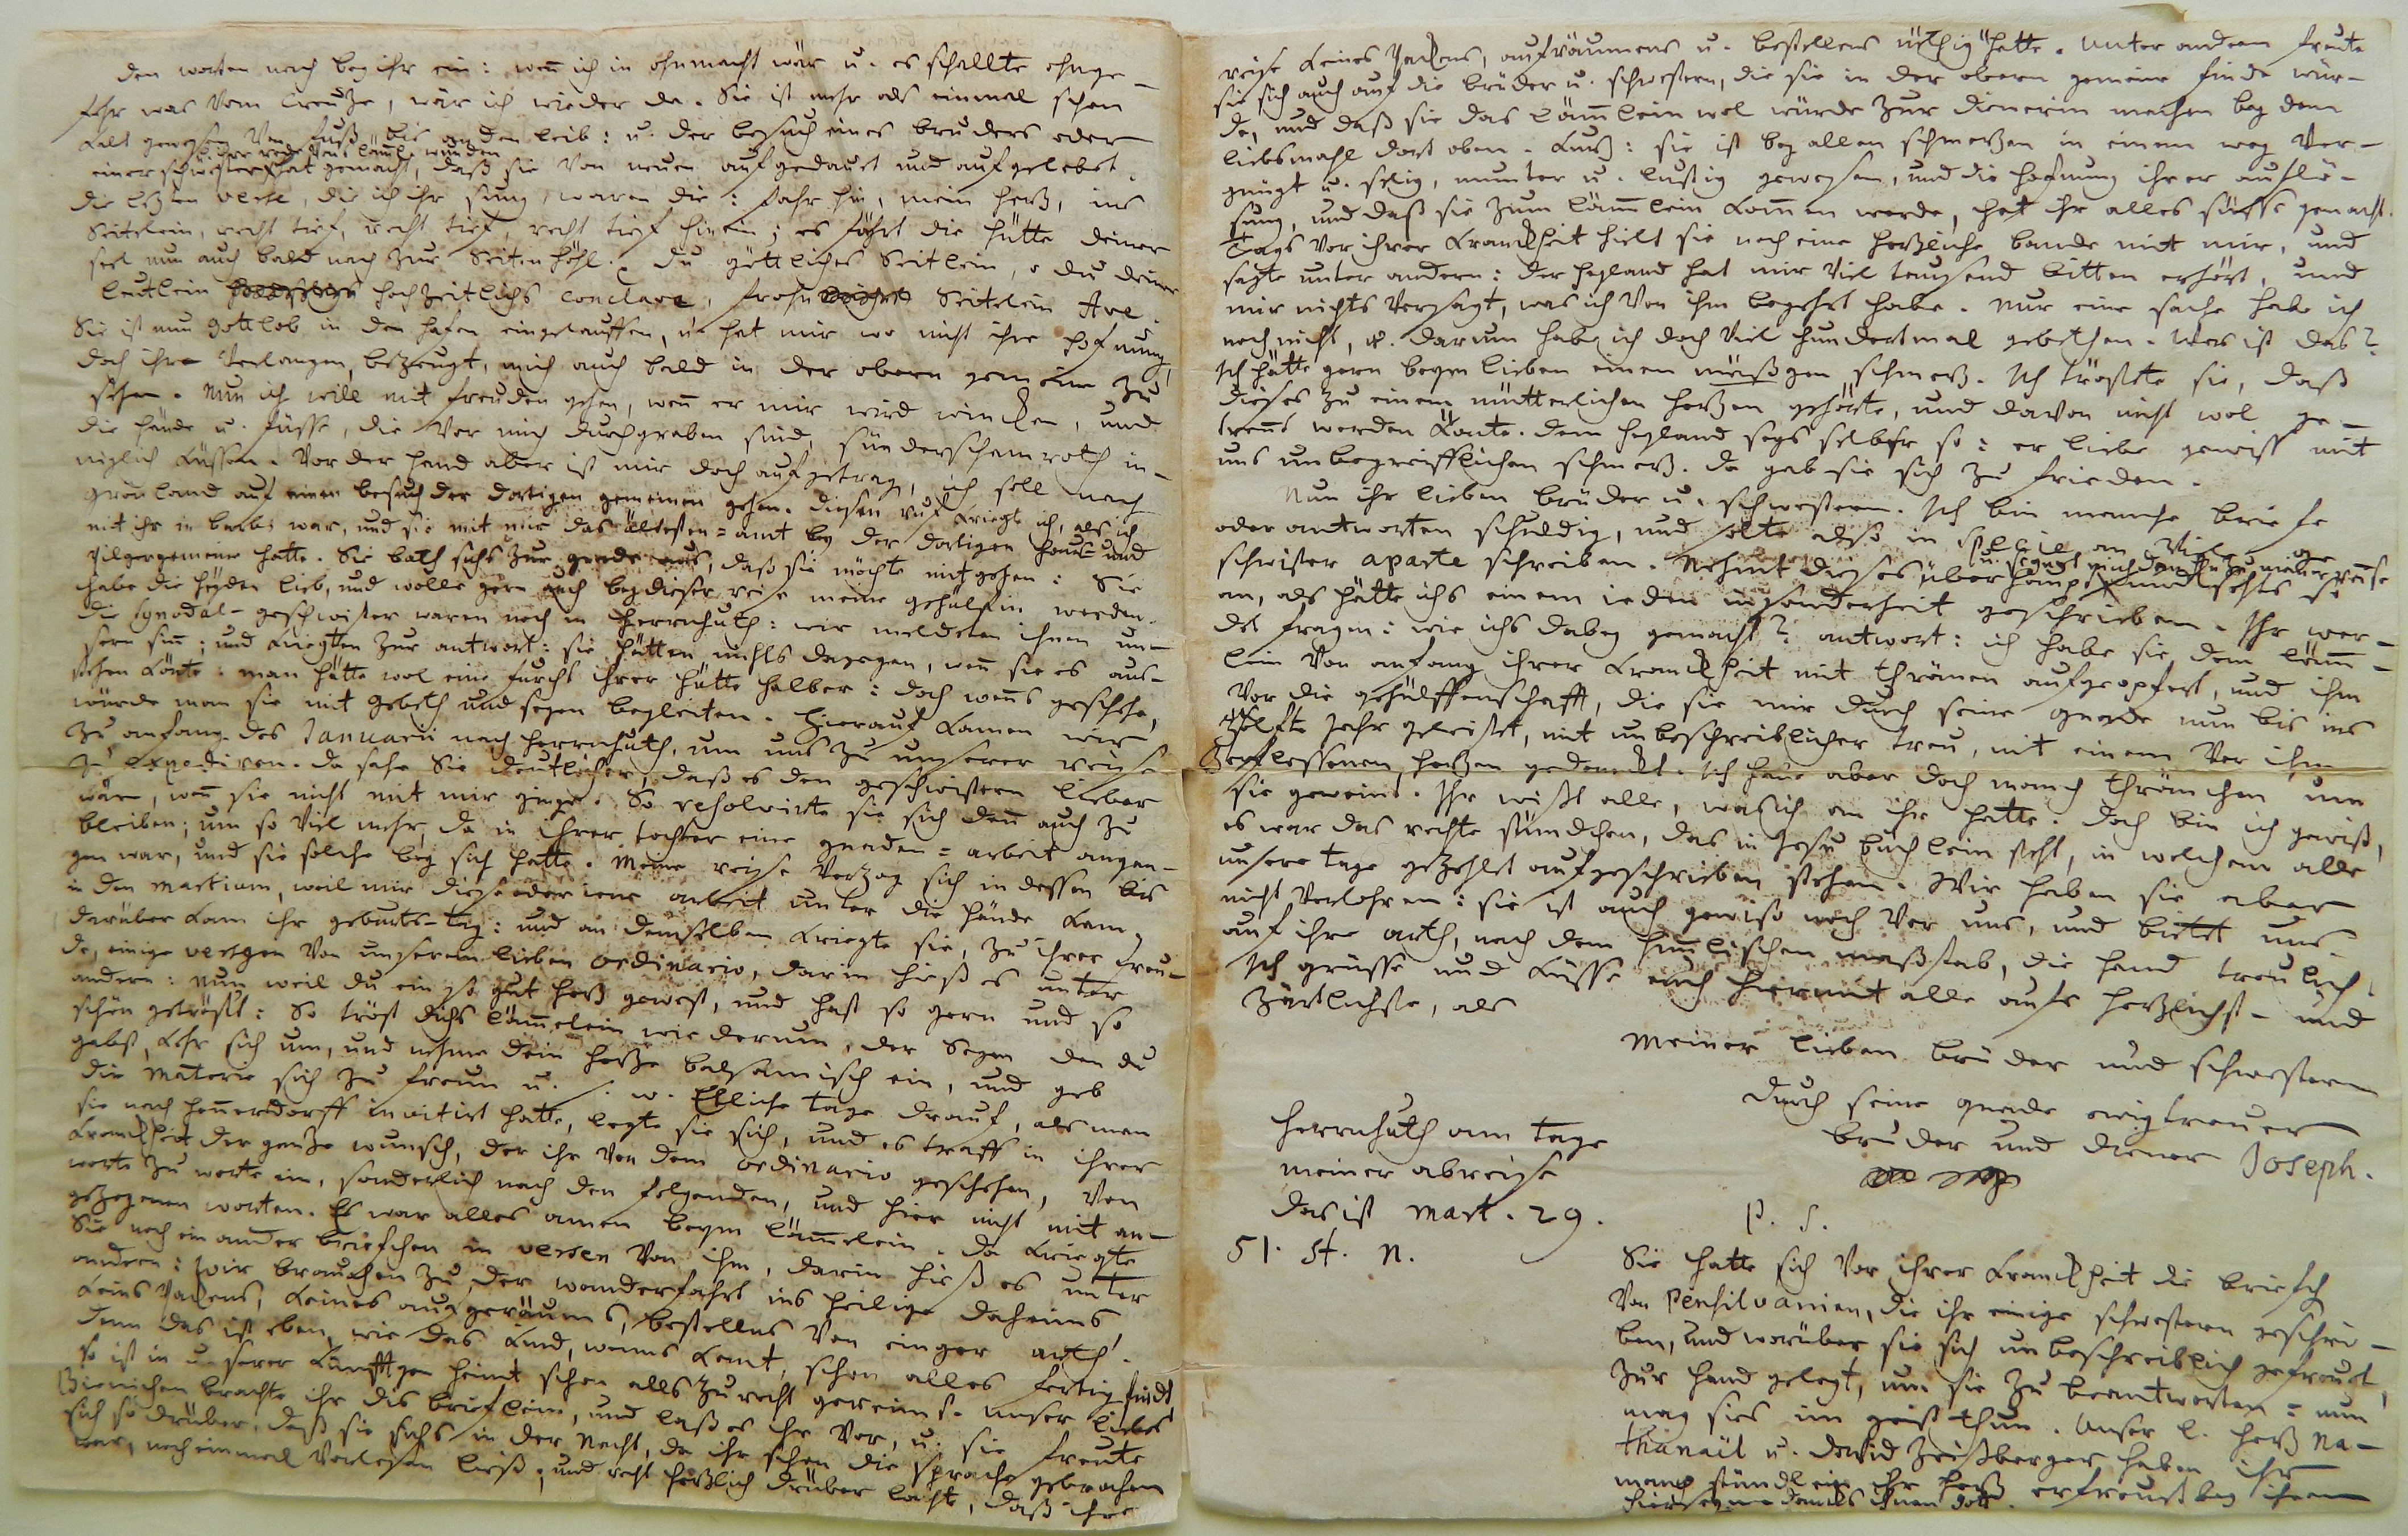 den worten nach bey ihr ein: weñ ich in ohnmacht wär u. es schallte ohnge-
fehr was vom Creutze, wär ich wieder da. Sie ist mehr als einmal schon
kalt gewesen von fuß bis an den leib: u. der besuch eines bruders oder
einer schwester hat gemacht, daß sie von neuen aufgedauet und aufgelebet.
die letzten verse, die ich ihr sung, waren die: fahr hin, mein hertz, ins
Seitelein, recht tief, recht tief, recht tief hinein; es fährt die hütte deiner
seel nun auch bald nach zur Seitenhöhl. Du göttliches Seitlein, o du deiner
leutlein hochzeitlichs conclave, Seitelein Ave.
Sie ist nun Gottlob in den hafen eingelauffen, u. hat mir wo nicht ihre hofnung
doch ihr Verlangen bezeugt, mich auch bald in der obern gemeine zu
sehen. Nun ich will mit freuden gehen, weñ er mir wird wincken, und
die hände u. füsse, die vor mich durchgraben sind, sünderschamroth in-
niglich küssen. Vor der hand aber ist mir doch aufgetragen, ich soll nach
grönland auf einen besuch der dortigen gemeinen gehen. diesen ruf kriegte ich, als ich
mit ihr in barby war, und sie mit mir das ältesten-amt bey der dortigen haus- und
Pilgergemeine hatte. Sie bath sichs zur gnade aus, daß sie möchte mitgehen: Sie
habe die heyden lieb, und wolle gern auch bey dieser reise meine gehülfin werden.
die Synodal-geschwister waren noch in Herrnhuth: wir meldeten ihnen un-
sern siñ; und kriegten zur antwort: sie hätten nichts dagegen, weñ sie es aus-
stehen könte: man hätte wol eine furcht ihrer hütte halber: doch wenns geschehe,
würde man sie mit gebeth und segen begleiten. Hierauf kamen wir
zu anfang des Januarii nach Herrnhuth, um uns zu unserer reyse
zu expediren. da sahe Sie deutlicher, daß es den geschwistern lieber
wäre, weñ sie nicht mit mir ginge. So resolvirte sie sich deñ auch zu
bleiben; um so viel mehr, da in ihrer tochter eine gnaden-arbeit angan-
gen war, und sie solche bey sich hatte. Meine reyse verzog sich indessen bis
in den Martium, weil mir diese oder iene arbeit unter die hände kam.
darüber kam ihr geburts-tag: und an demselben kriegte sie, zu ihrer freu-
de, einige versgen von unserem lieben Ordinario, darin hieß es unter
andern: Nun weil du ein so gut hertz gewest, und hast so gern und so
schön getröst: So tröst dichs lämmelein wiederum, der Segen den du
gabst, kehr sich um, und nehme dein hertze balsamisch ein, und geb
die Materie sich zu freun u. s. w. Etliche tage drauf, als man
sie nach Hennersdorff invitirt hatte, legte sie sich, und es traff in ihrer
kranckheit der gantze wunsch, der ihr von dem Ordinario geschehen, von
worte zu worte ein, sonderlich nach den folgenden, und hier nicht mit an-
gezogenen worten. Es war alles amen beym lämmelein. da kriegte
Sie noch ein ander briefchen in versen von ihm, darin hieß es unter
andern: Wir brauchen zu der wanderfahrt ins heilige daheime
keins Packens, keines aufgeräums, bestellns von einger arth.
denn das ist eben, wie das kind, wenns komt, schon alles fertig findt,
so ist in unserer künfftgen heimt schon alls zurecht gereimt. Unser liebes
brachte ihr dis brieflein, und laß es ihr vor, u. sie freute
sich so drüber, daß sie sichs in der Nacht, da ihr schon die sprache gebrochen
war, noch einmal vorlesen ließ, und recht hertzlich drüber lachte, daß ihre
reise keines Packens, aufräumens u. bestellens nöthig hatte. Unter andern freute
sie sich auch auf die brüder u. schwestern, die sie in der obern gemeine finde wür-
de, und daß sie das lämmlein wol würde zur dienerin machen bey dem
liebsmahl dort oben. kurtz: sie ist bey allen schmertzen in einem weg ver-
gnügt u. selig, munter u. lustig gewesen, und die hofnung ihrer auflö-
sung, und daß sie zum lämmlein kommen werde, hat ihr alles süsse gemacht.
Tags vor ihrer kranckheit hielt sie noch eine hertzliche bande mit mir, und
sagte unter andern: der heyland hat mir viel tausend bitten erhört, und
mir nichts versagt, was ich von ihm begehrt habe. Nur eine sache habe ich
noch nicht, u. darum hab ich doch viel hundertmal gebethen. Was ist das?
Ich hätte gern beym lieben einen mäßgen schmertz. Ich tröstete sie, daß
dieses zu einem mütterlichen hertzen gehörte, und davon nicht wol ge-
trennt werden könte. dem heyland segs selber so: er liebe gewiß mit
uns unbegreifflichen schmertz. da gab sie sich zu frieden.
Nun ihr lieben brüder u. schwestern. Ich bin manche briefe
oder antworten schuldig, und solte also in specie an viele ge-
schwister aparte schreiben. Nehmt dieses überhaupt
an, als hätte ichs einem ieden insonderheit geschrieben. Ihr wer-
det fragen: wie ichs dabey gemacht? antwort: ich habe sie dem lämm-
lein von anfang ihrer kranckheit mit thränen aufgeopfert, und ihm
vor die gehülffenschafft, die sie mir durch seine gnade nun bis ins
zwölfte Jahr geleistet, mit unbeschreiblicher treu, mit einem vor ihm
zerflossenen hertzen gedanckt. Ich habe aber doch manch thränchen um
sie geweint. Ihr wißt alle, was ich an ihr hatte. doch bin ich gewiß,
es war das rechte stündchen, das in Jesu büchlein steht, in welchem alle
unsere tage gezehlet aufgeschrieben stehen. Wir haben sie aber
nicht verlohren: sie ist auch gewiß noch vor uns, und bietet uns
auf ihre arth, nach dem himmlischen maßstab, die hand treulich.
Ich grüsse und küsse euch hiermit alle aufs hertzlichst- und
zärtlichste, als
meiner lieben brüder und schwestern
durch seine gnade ewig treuer
bruder und diener Joseph.
Herrnhuth am tage
meiner abreise
das ist Mart. 29.
51. St. N.
P. S.
Sie hatte sich vor ihrer kranckheit die briefe
von Pensilvanien, die ihr einige schwestern geschrie-
ben, und worüber sie sich unbeschreiblich gefreuet,
zur hand gelegt, um sie zu beantworten: nun
mag sies im geist thun. Unser l. hertz Na-
thanael u. David Zeisberger haben ihr
manch stündlein ihr hertz erfreuet bey ihrem